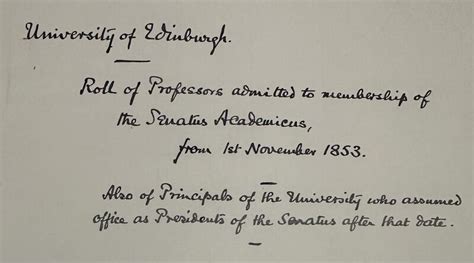 University of Edinburgh.
Roll of Professors admitted to membership of
the Senatus Academicus,
from 1st November 1853.
Also of Principals of the University who assumed
office as Presidents of the Senatus after that date.